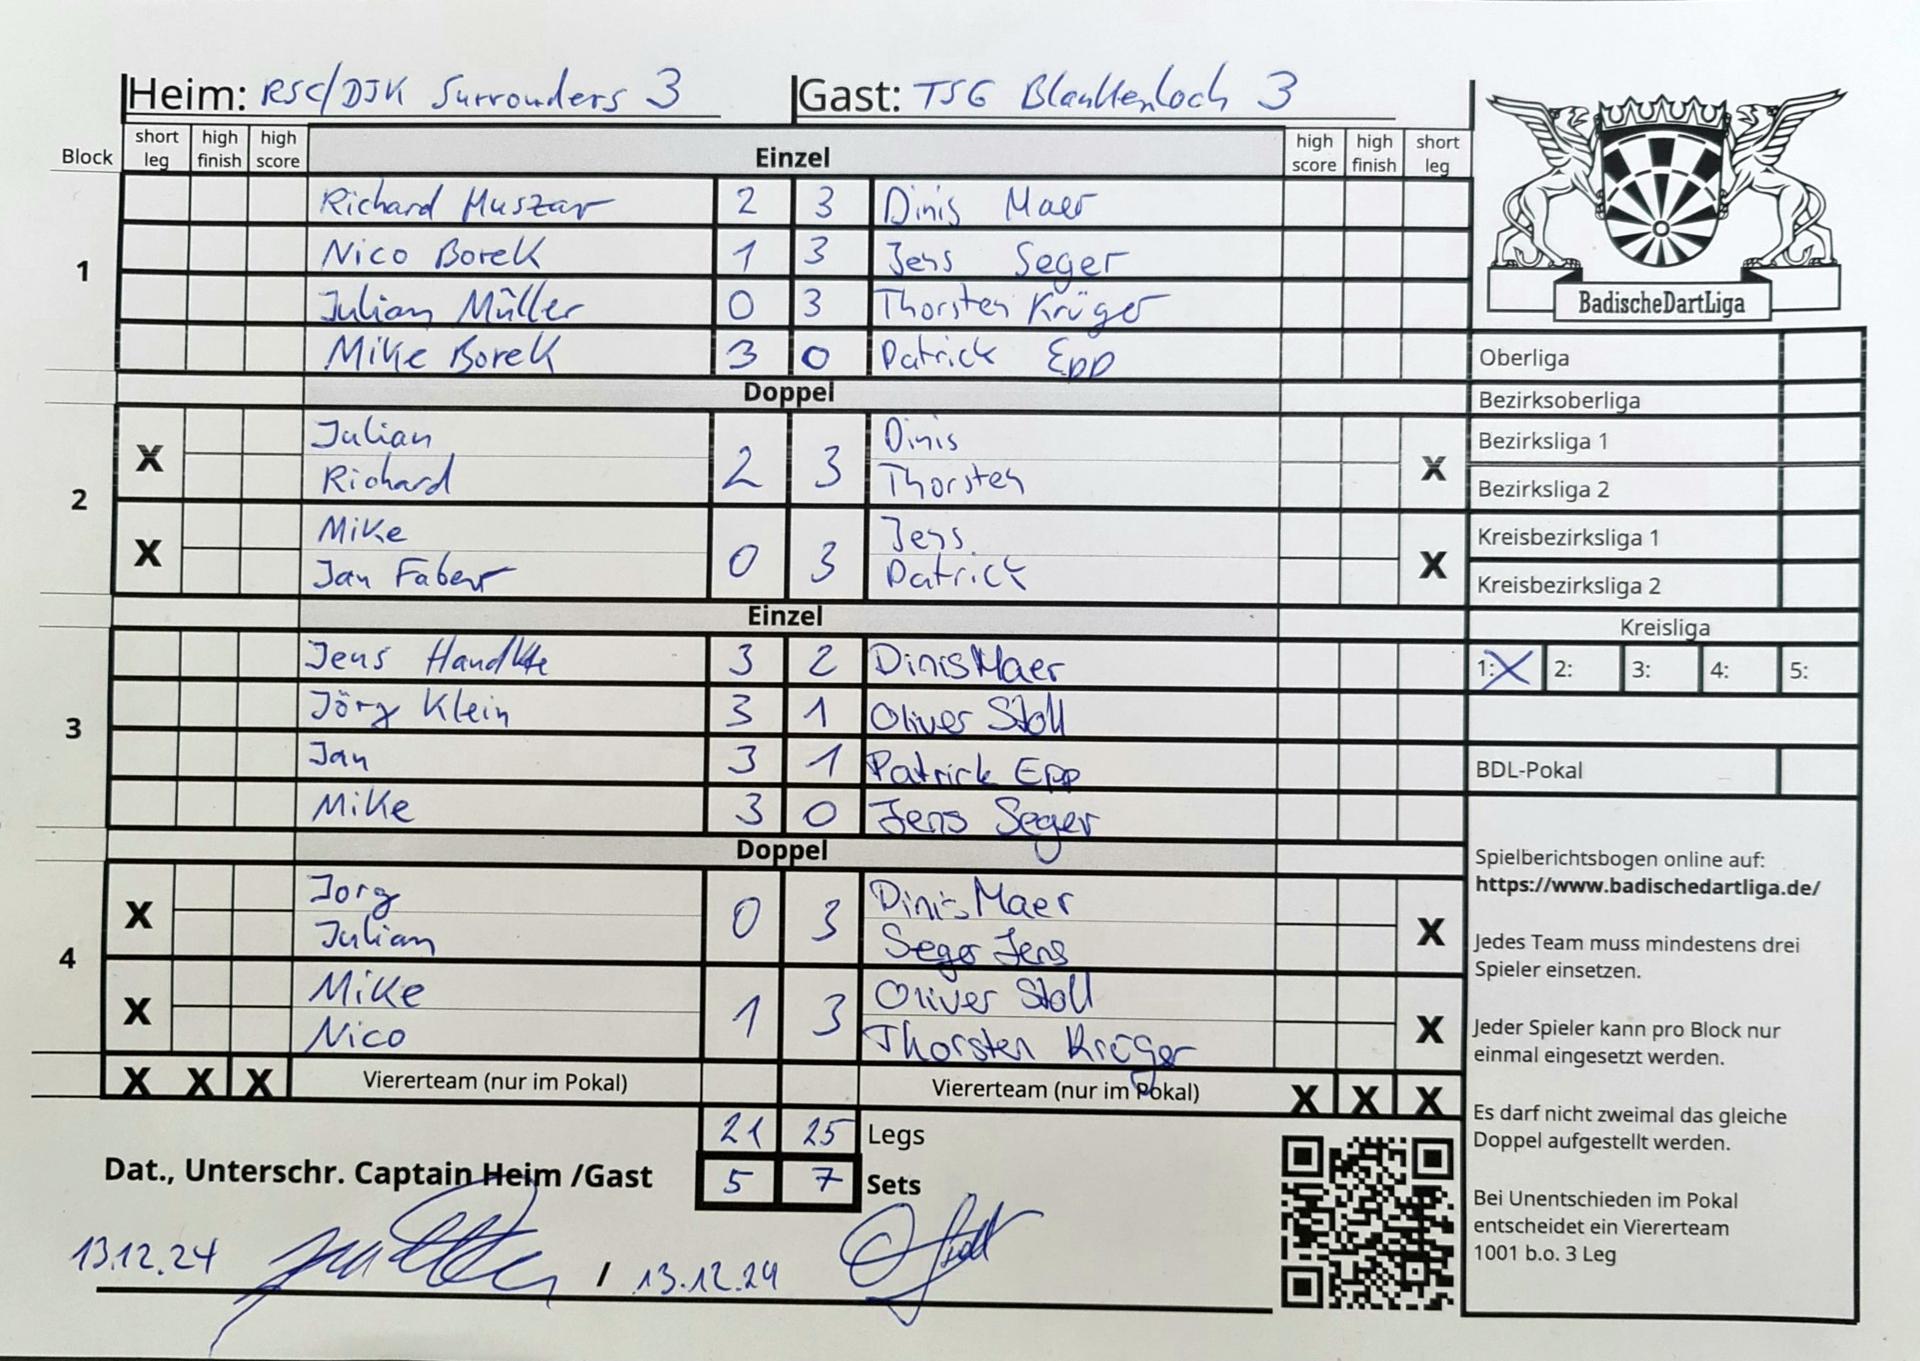 Heim: RSC/DJK Surrounders 3 Gast: TSG Blankenloch 3
Block short leg high finish high score Einzel high score high finish short leg
1
Richard Muszar 2 3 Dinis Maer
Nico Borek 1 3 Jens Seger
Julian Müller 0 3 Thorsten Krüger
Mike Borek 3 0 Patrick Epp
Doppel
2
X Julian 2 3 Dinis X
Richard Thorsten
X Mike 0 3 Jens X
Jan Faber Patrick
Einzel
3
Jens Handtke 3 2 Dinis Maer
Jörg Klein 3 1 Oliver Stoll
Jan 3 1 Patrick Epp
Mike 3 0 Jens Seger
Doppel
4
X Jorg 0 3 Dinis Maer X
Julian Seger Jens
X Mike 1 3 Oliver Stoll X
Nico Thorsten Krüger
X X X Vierterteam (nur im Pokal) Vierterteam (nur im Pokal) X X X
21 25 Legs
5 7 Sets
Dat., Unterschr. Captain Heim /Gast
13.12.24 / 13.12.24
BadischeDartLiga
Oberliga
Bezirksoberliga
Bezirksliga 1
Bezirksliga 2
Kreisbezirksliga 1
Kreisbezirksliga 2
Kreisliga
1: X 2: 3: 4: 5:
BDL-Pokal
Spielberichtsbogen online auf:
https://www.badischedartliga.de/
Jedes Team muss mindestens drei
Spieler einsetzen.
Jeder Spieler kann pro Block nur
einmal eingesetzt werden.
Es darf nicht zweimal das gleiche
Doppel aufgestellt werden.
Bei Unentschieden im Pokal
entscheidet ein Viererteam
1001 b.o. 3 Leg